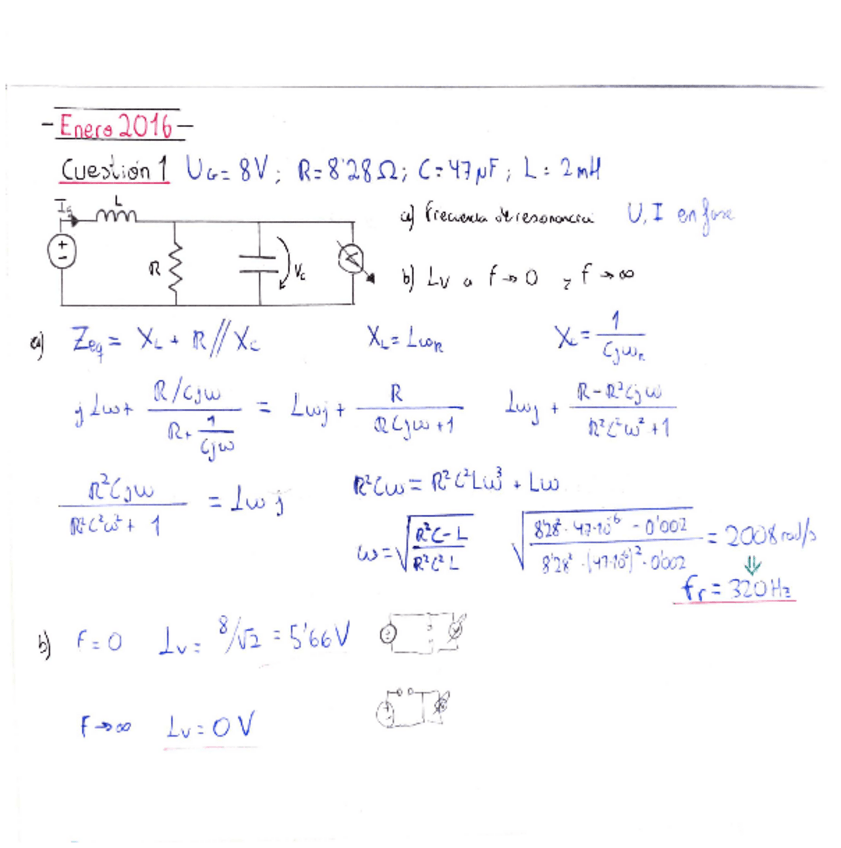 - Enero 2016 -
Cuestión 1 UG = 8V; R = 8'28 Ω; C = 47 μF; L = 2 mH
Ig L
a) Frecuencia de resonancia U, I en fase
R Vc
b) Lv a f → 0 y f → ∞
a) Zeq = XL + R // Xc XL = LωR Xc = 1/CjωR
jLω + (R/Cjω)/(R + 1/Cjω) = Lωj + R/(RCjω + 1) Lωj + (R - R²Cjω)/(R²C²ω² + 1)
R²Cjω/(R²C²ω² + 1) = Lωj R²Cω = R²C²Lω³ + Lω
ω = √((R²C - L)/(R²C²L)) √((8'28² · 47·10⁻⁶ - 0'002)/(8'28² · (47·10⁻⁶)² · 0'002)) = 2008 rad/s
⇓
fr = 320 Hz
b) f = 0 Lv = 8/√2 = 5'66 V
f → ∞ Lv = 0 V